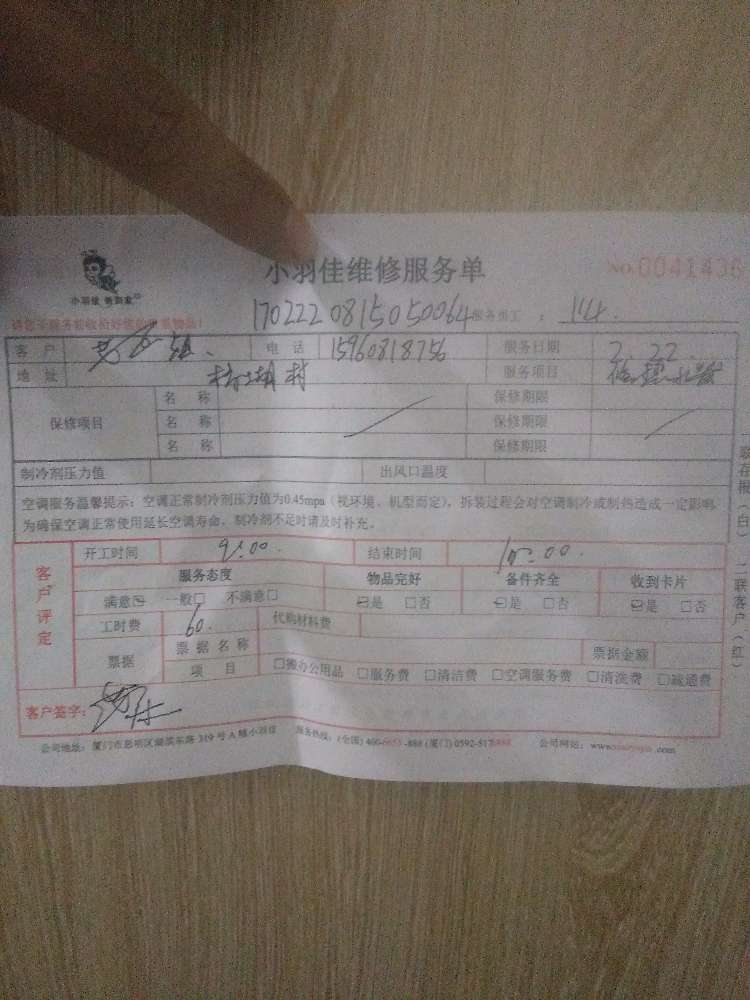 小羽佳维修服务单
NO.0041436
小羽佳
170222 0815050064 服务员工： 144.
客户 电话 15960818756 服务日期 2.22.
地址 村 服务项目
保修项目 名称 保修期限
名称 保修期限
名称 保修期限
制冷剂压力值 出风口温度
空调服务温馨提示：空调正常制冷剂压力值为0.45mpa（视环境、机型而定），拆装过程会对空调制冷或制热造成一定影响
为确保空调正常使用延长空调寿命，制冷剂不足时请及时补充。
客户评定
开工时间 9:00. 结束时间 10:00.
服务态度 物品完好 备件齐全 收到卡片
满意☑ 一般☐ 不满意☐ ☑是 ☐否 ☑是 ☐否 ☑是 ☐否
工时费 60. 代购材料费
票据 票据名称 票据金额
项目 ☐办公用品 ☐服务费 ☐清洁费 ☐空调服务费 ☐清洗费 ☐疏通费
客户签字：
公司地址：厦门市思明区湖滨东路319号A幢小羽佳 服务热线：(全国) 400- -888 (厦门) 0592-517 公司网站：www. .com
二联客户（红）